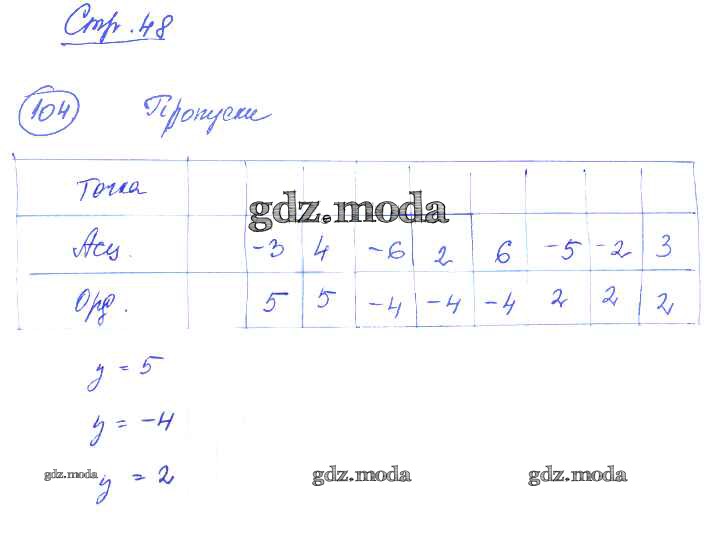 Стр. 48
104 Пропуски
Точка
gdz.moda
Асц. -3 4 -6 2 6 -5 -2 3
Орд. 5 5 -4 -4 -4 2 2 2
y = 5
y = -4
gdz.moda y = 2 gdz.moda gdz.moda